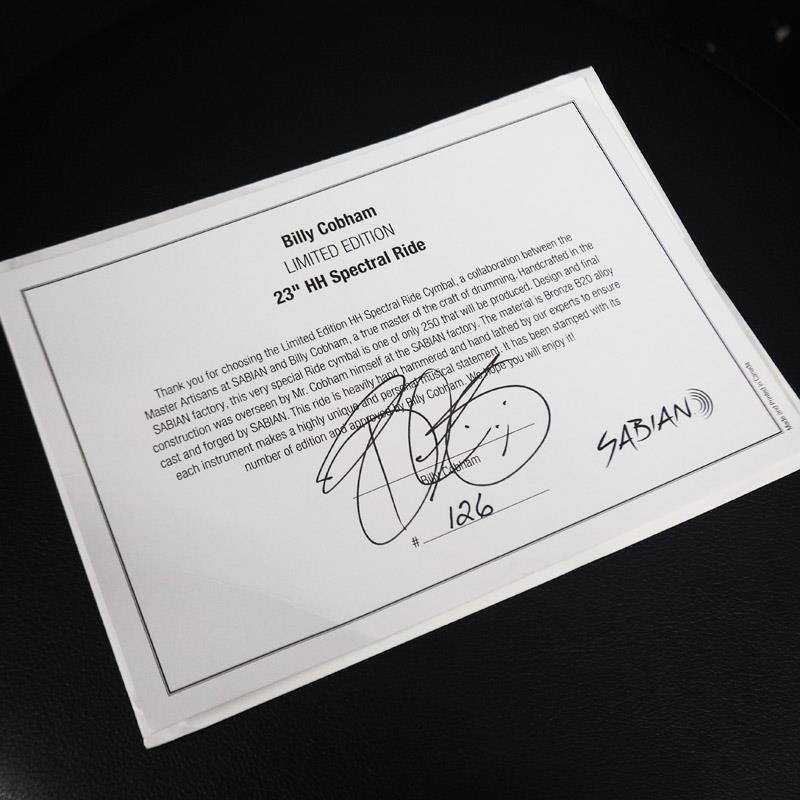 Billy Cobham
LIMITED EDITION
23" HH Spectral Ride
Thank you for choosing the Limited Edition HH Spectral Ride Cymbal, a collaboration between the
Master Artisans at SABIAN and Billy Cobham, a true master of the craft of drumming. Handcrafted in the
SABIAN factory, this very special Ride cymbal is one of only 250 that will be produced. Design and final
construction was overseen by Mr. Cobham himself at the SABIAN factory. The material is Bronze B20 alloy
cast and forged by SABIAN. This ride is heavily hand hammered and hand lathed by our experts to ensure
each instrument makes a highly unique and personal musical statement. It has been stamped with its
number of edition and approved by Billy Cobham. We hope you will enjoy it!
Billy Cobham
# 126
SABIAN
Made and Printed in Canada